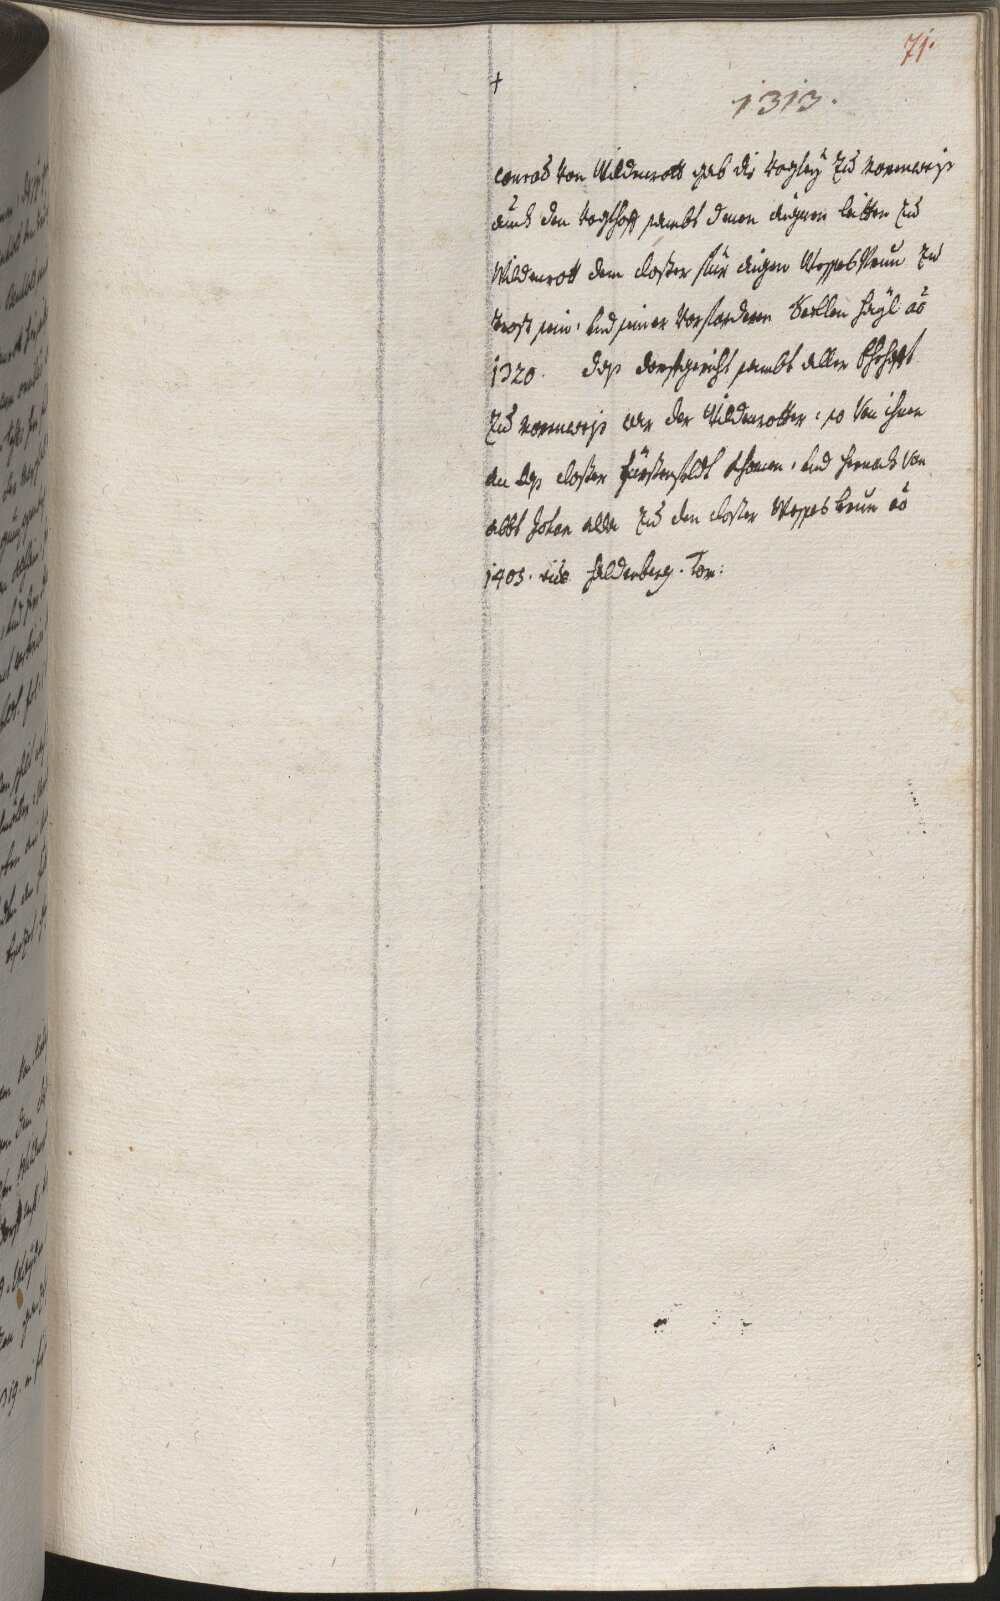 71.
+
1313.
Conrad von Wildenrott gab die Vogtey zu Norenweiß
auch den Vogthoff sambt denen aignen leitten zu
Wildenrott dem Closter für aigen Wessesbrun zu
trost sein, und seiner Vorforderen Seellen hayl ao
1320. das dorfgericht sambt aller Ehehafft
zu Norenweiß war der Wildenrotter, so von ihnen
an das Closter Fürstenfeldt khomen, und hernach von
abbt Johan alda zu den Closter Wessesbrun ao
1403. vide Haldenberg. Tom: